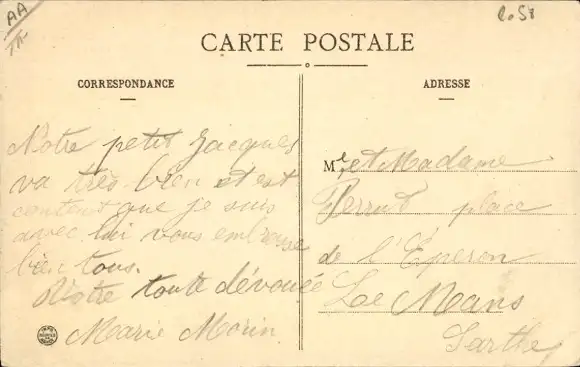 AA
CARTE POSTALE
CORRESPONDANCE
ADRESSE
Notre petit Jacques
va très bien et est
content que je suis
avec lui vous embrasse
bien tous.
Vôtre toute dévouée
Marie Morin
M et Madame
place
de l'Éperon
Le Mans
Sarthe